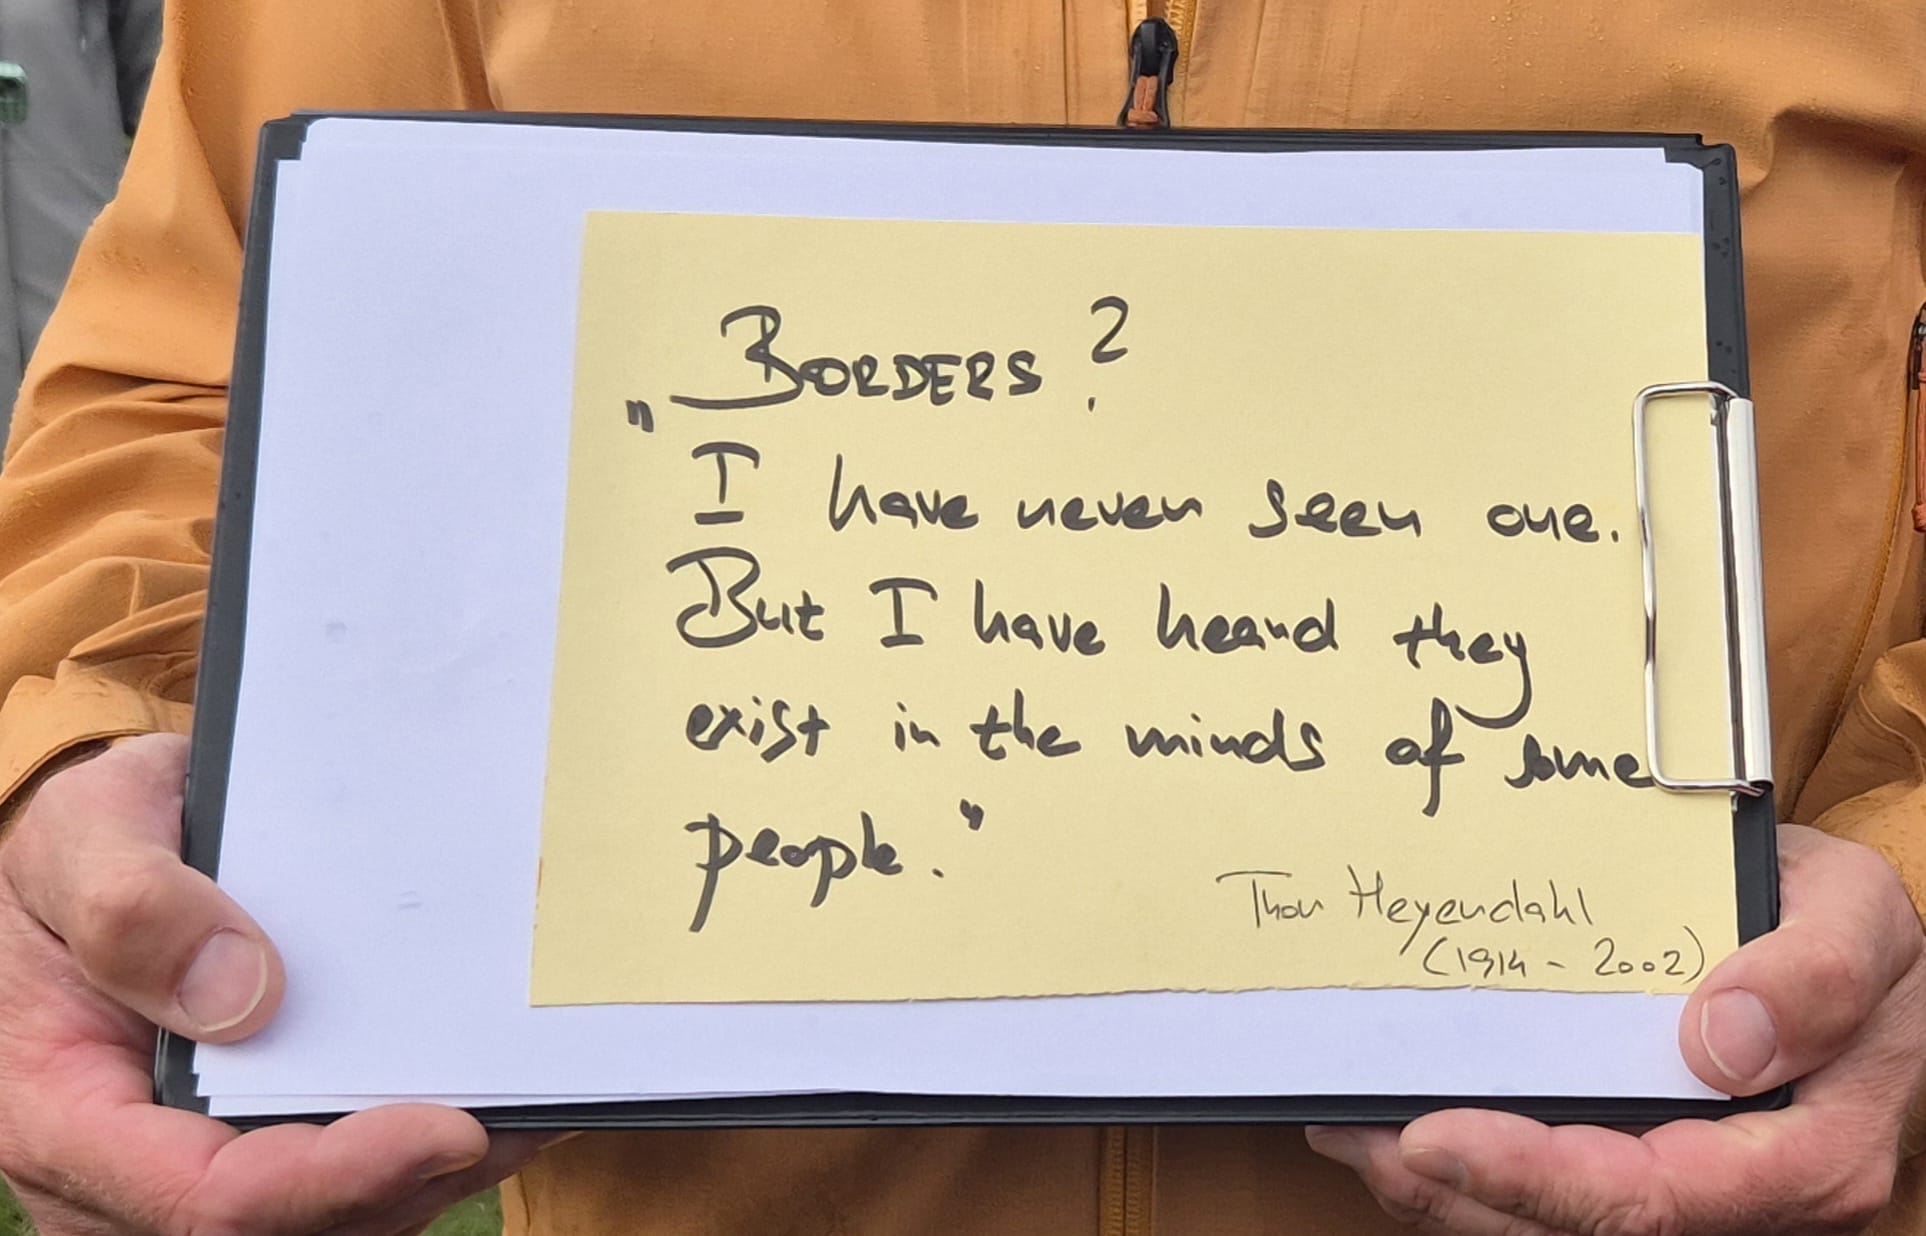 „BORDERS?
I have never seen one.
But I have heard they
exist in the minds of some
people."
Thor Heyerdahl
(1914 - 2002)